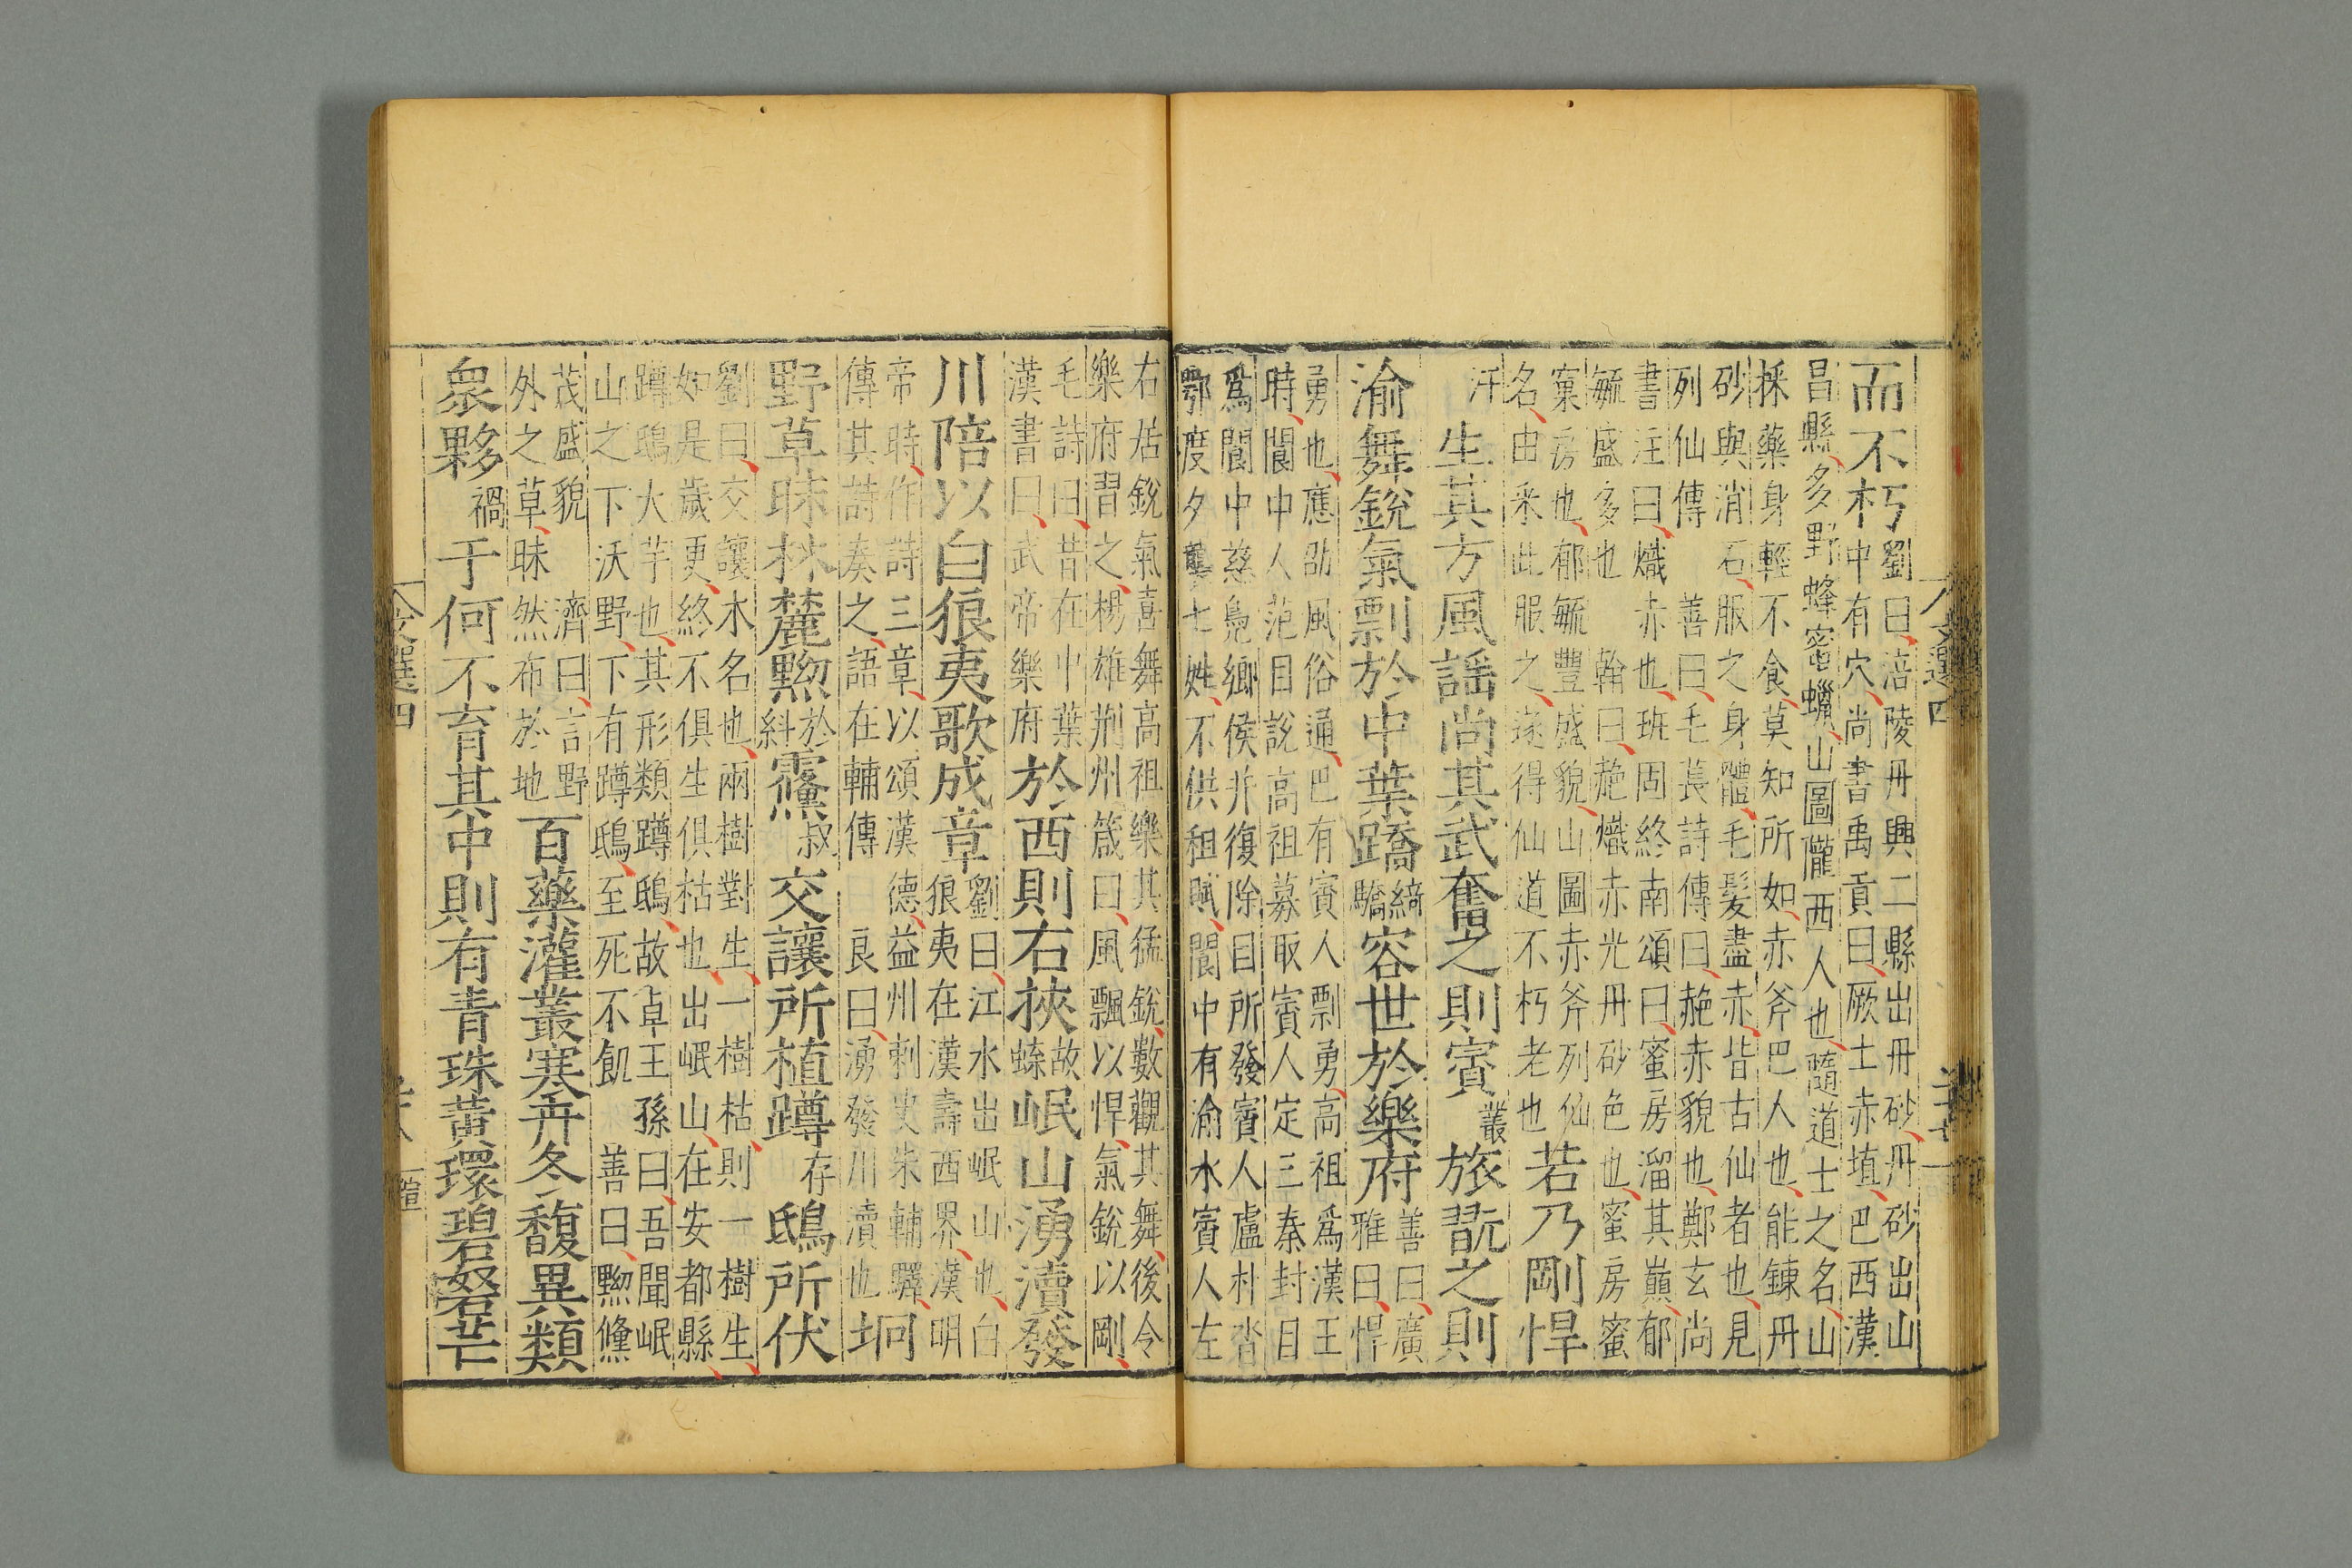 而不朽劉曰涪陵丹興二縣出丹砂丹砂出山
中有穴尚書禹貢曰厥土赤埴巴西漢
昌縣多野蜂蜜蠟山圖隴西人也隨道士之名山
採藥身輕不食莫知所如赤斧巴人也能鍊丹
砂與消石服之身體毛髮盡赤皆古仙者也見
列仙傳 善曰毛萇詩傳曰赩赤貌也鄭玄尚
書注曰熾赤也班固終南頌曰蜜房溜其巔郁
毓盛多也 翰曰赩熾赤光丹砂色也蜜房蜜
窠房也郁毓豐盛貌山圖赤斧列仙
名由釆此服之遂得仙道不朽老也若乃剛悍
汗生其方風謠尚其武奮之則賨叢旅翫之則
渝舞銳氣剽於中葉蹻綺驕容世於樂府善曰廣
雅曰悍
勇也應劭風俗通巴有賨人剽勇高祖爲漢王
時閬中人范目說高祖募取賨人定三秦封目
爲閬中慈鳧鄉侯并復除目所發賨人盧朴沓
鄂度夕龔七姓不供租賦閬中有渝水賨人左
文選四
右居銳氣喜舞高祖樂其猛銳數觀其舞後令
樂府習之楊雄荆州箴曰風飄以悍氣銳以剛
毛詩曰昔在中葉
漢書曰武帝樂府於西則右挾故岷山湧瀆發
川陪以白狼夷歌成章劉曰江水出岷山也白
狼夷在漢壽西界漢明
帝時作詩三章以頌漢德益州刺史朱輔驛
傳其詩奏之語在輔傳 良曰湧發川瀆也坰
野草昧林麓黝於糾儵叔交讓所植蹲存鴟所伏
劉曰交讓木名也兩樹對生一樹枯則一樹生
如是歲更終不俱生俱枯也出岷山在安都縣
蹲鴟大芋也其形類蹲鴟故卓王孫曰吾聞岷
山之下沃野下有蹲鴟至死不飢 善曰黝儵
茂盛貌 濟曰言野
外之草昧然布於地百藥灌叢寒卉冬馥異類
衆夥禍于何不育其中則有青珠黃環碧砮芒
文選四